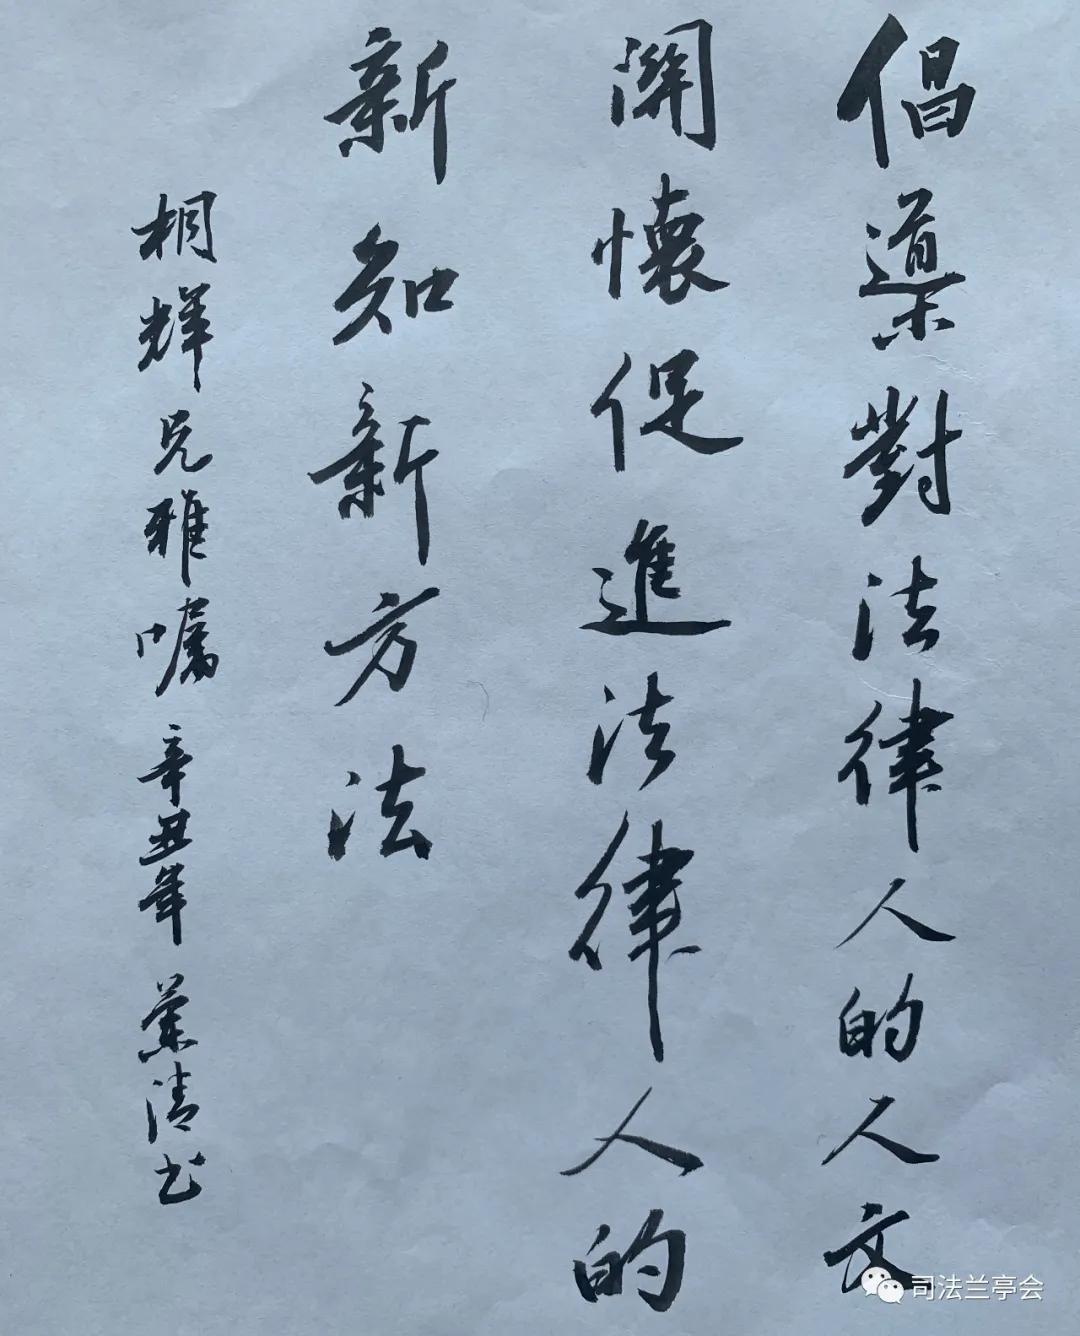 倡導對法律人的人文
関懷促進法律人的
新知新新方法
桐輝兄雅囑 辛丑年 葉清书
司法兰亭会